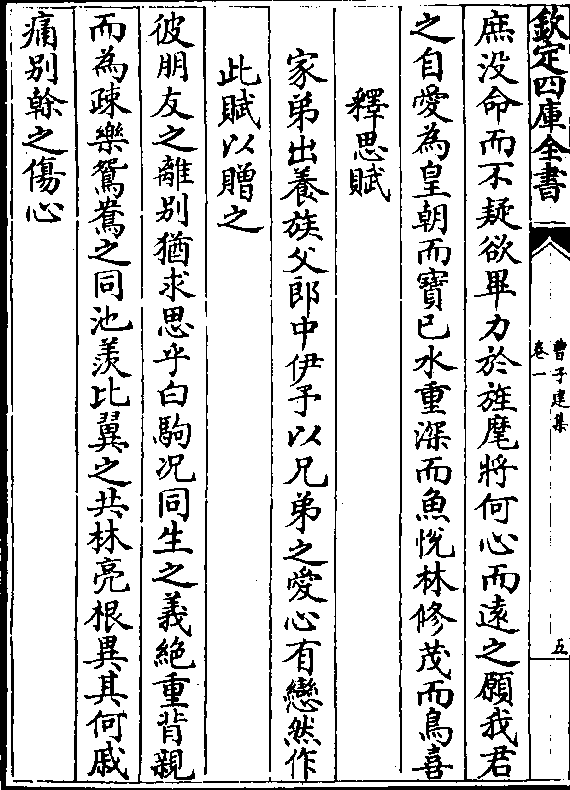 欽定四庫全書
曹子建集
卷一
五
庶没命而不疑欲畢力於旌麾將何心而遠之願我君
之自愛為皇朝而寶己水重深而魚悅林修茂而鳥喜
釋思賦
家弟出養族父郎中伊予以兄弟之愛心有戀然作
此賦以贈之
彼朋友之離别猶求思乎白駒况同生之義絶重背親
而為疎樂鴛鴦之同池羨比翼之共林亮根異其何戚
痛别榦之傷心